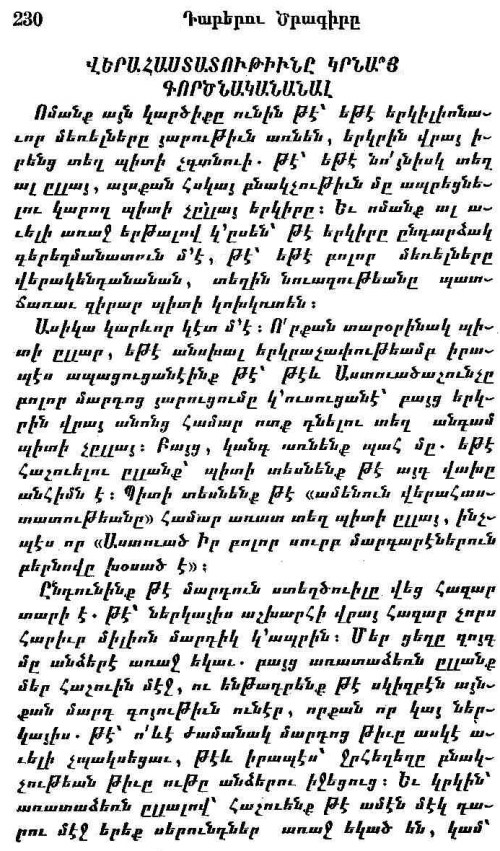 230 Դարերու Ծրագիրը
ՎԵՐԱՀԱՍՏԱՏՈՒԹԻՒՆԸ ԿՐՆԱ՞Յ
ԳՈՐԾՆԱԿԱՆԱՆԱԼ
Ոմանք այն կարծիքը ունին թէ՝ եթէ երկիլիոնա-
ւոր մեռելները յարութիւն առնեն, երկրին վրայ ի-
րենց տեղ պիտի չգտնուի. թէ՝ եթէ նո՛յնիսկ տեղ
ալ ըլլայ, այսքան հսկայ բնակչութիւն մը ապրեցնե-
լու կարող պիտի չըլլայ երկիրը: Եւ ոմանք ալ ա-
ւելի առաջ երթալով կ՚ըսեն՝ թէ երկիրը ընդարձակ
գերեզմանատուն մ՚է, թէ՝ եթէ բոլոր մեռելները
վերակենդանանան, տեղին նուազութեանը պատ-
ճառաւ զիրար պիտի կոխկռտեն:
Ասիկա կարևոր կէտ մ՚է: Ո՜րքան տարօրինակ պի-
տի ըլլար, եթէ անսխալ երկրաչափութեամբ իրա-
պէս ապացուցանէինք թէ՝ թէև Աստուածաշունչը
բոլոր մարդոց յարուցումը կ՚ուսուցանէ՝ բայց երկ-
րին վրայ անոնց համար ոտք դնելու տեղ անգամ
պիտի չըլլայ: Բայց, կանգ առնենք պահ մը. եթէ
հաշուելու ըլլանք՝ պիտի տեսնենք թէ այդ վախը
անհիմն է: Պիտի տեսնենք թէ «ամենուն վերահաս-
տատութեանը» համար առատ տեղ պիտի ըլլայ, ինչ-
պէս որ «Աստուած Իր բոլոր սուրբ մարգարէներուն
բերնովը խօսած է»:
Ընդունինք թէ մարդուն ստեղծուիլը վեց հազար
տարի է. թէ՝ ներկայիս աշխարհի վրայ հազար չորս
հարիւր միլիոն մարդիկ կ՚ապրին: Մեր ցեղը զոյգ
մը անձերէ առաջ եկաւ. բայց առատաձեռն ըլլանք
մեր հաշուին մէջ, ու ենթադրենք թէ սկիզբէն այն-
քան մարդ գոյութիւն ունէր, որքան որ կայ ներ-
կայիս. թէ՝ ո՛ևէ ժամանակ մարդոց թիւը ասկէ ա-
ւելի չպակսեցաւ, թէև իրապէս՝ ջրհեղեղը բնակ-
չութեան թիւը ութը անձերու իջեցուց: Եւ կրկին՝
առատաձեռն ըլլալով՝ հաշուենք թէ ամէն մէկ դա-
րու մէջ երեք սերունդներ առաջ եկած են, կամ՝